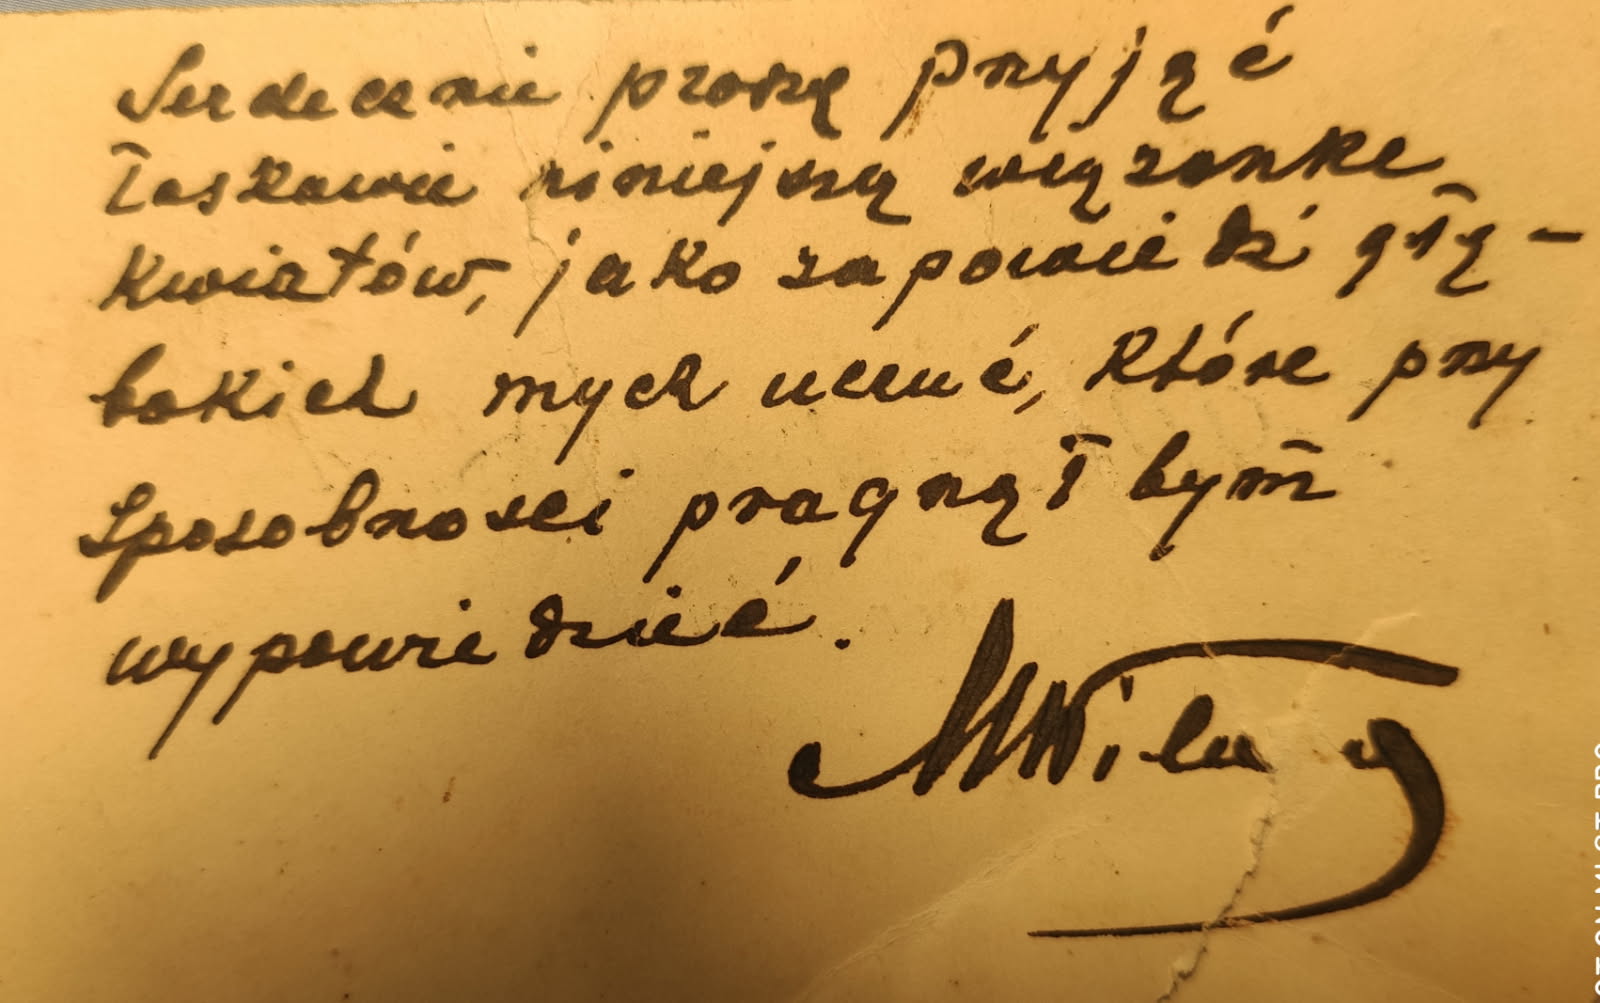 Serdecznie proszę przyjąć
łaskawie niniejszą wiązankę
kwiatów, jako zapowiedź głę-
bokich mych uczuć, które przy
sposobności pragnął bym
wypowiedzieć.